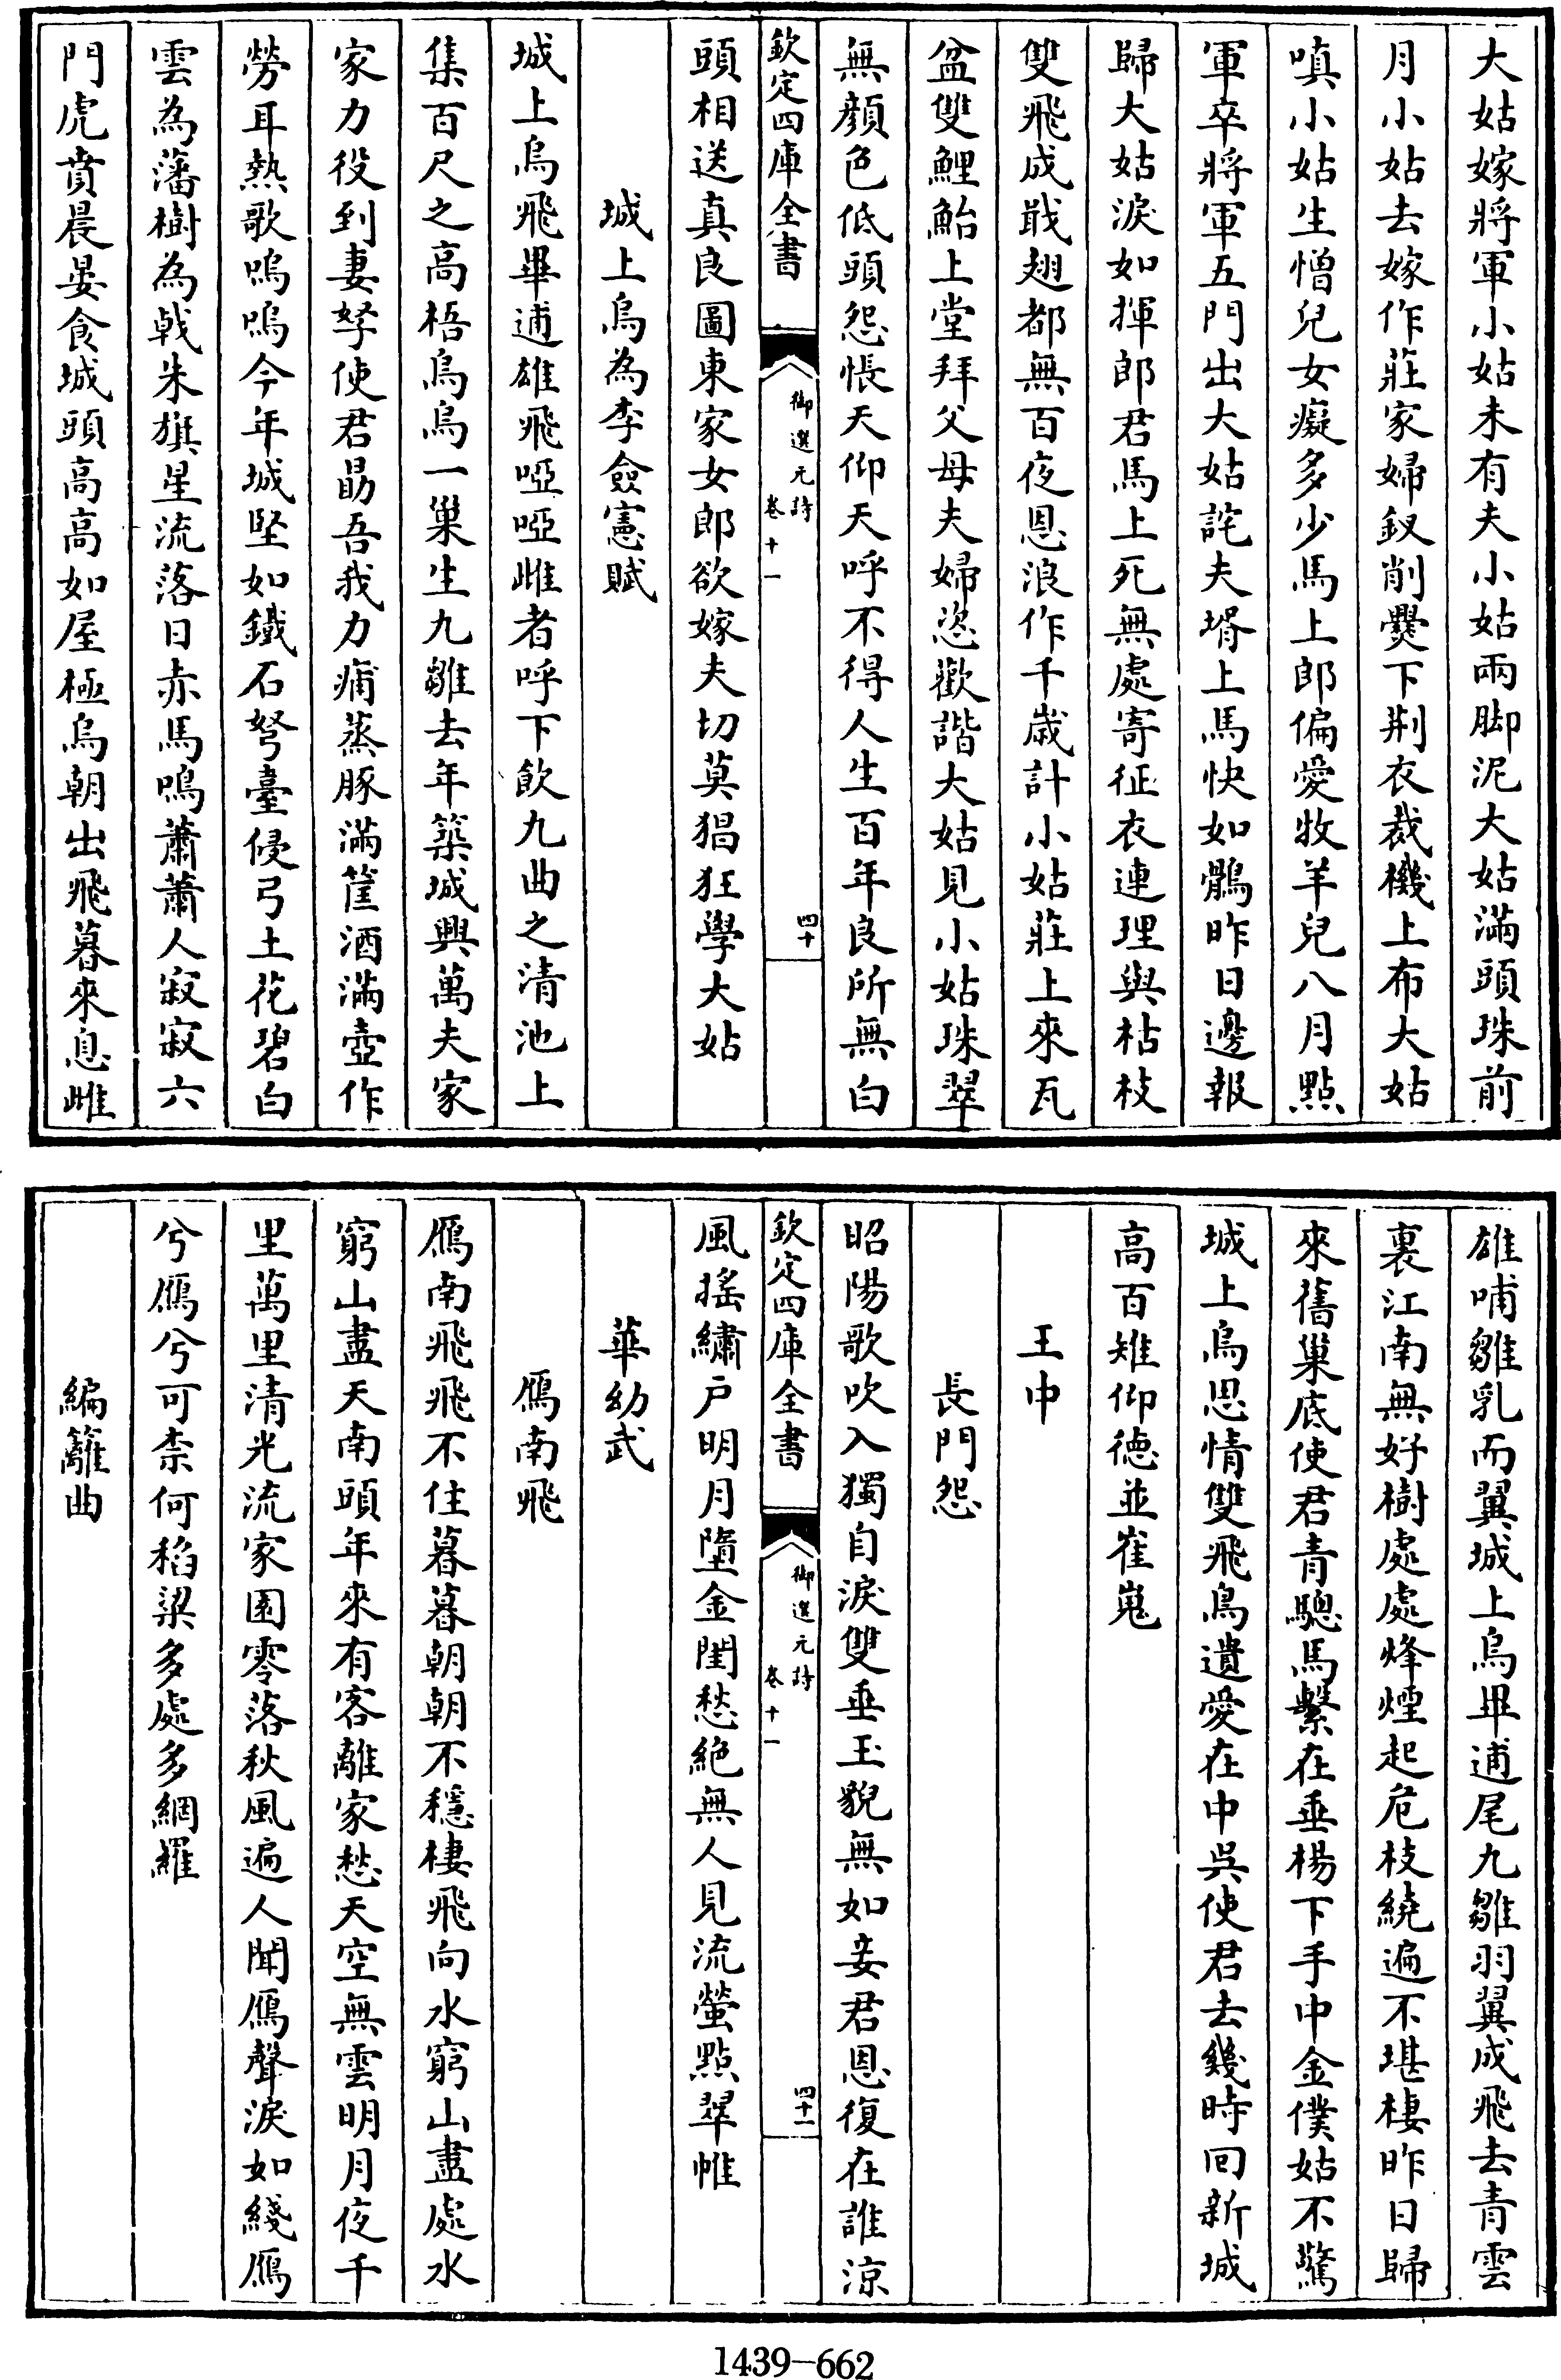 大姑嫁將軍小姑未有夫小姑兩脚泥大姑滿頭珠前
月小姑去嫁作莊家婦釵削爨下荆衣裁機上布大姑
嗔小姑生憎兒女癡多少馬上郎偏愛牧羊兒八月點
軍卒將軍五門出大姑詫夫壻上馬快如鶻昨日邊報
歸大姑淚如揮郎君馬上死無處寄征衣連理與枯枝
雙飛成戢翅都無百夜恩浪作千歲計小姑莊上來瓦
盆雙鯉鮐上堂拜父母夫婦恣歡諧大姑見小姑珠翠
無顔色低頭怨悵天仰天呼不得人生百年良所無白
欽定四庫全書
御選元詩
卷十一
四十
頭相送真良圖東家女郎欲嫁夫切莫猖狂學大姑
城上烏為李僉憲賦
城上烏飛畢逋雄飛啞啞雌者呼下飲九曲之清池上
集百尺之高梧烏烏一巢生九雛去年築城興萬夫家
家力役到妻孥使君勗吾我力痡蒸豚滿筐酒滿壺作
勞耳熱歌嗚嗚今年城堅如鐵石弩臺侵弓土花碧白
雲為藩樹為戟朱旗星流落日赤馬鳴蕭蕭人寂寂六
門虎賁晨晏食城頭高高如屋極烏朝出飛暮來息雌
雄哺雛乳而翼城上烏畢逋尾九雛羽翼成飛去青雲
裏江南無好樹處處烽煙起危枝繞遍不堪棲昨日歸
來舊巢底使君青驄馬繫在垂楊下手中金僕姑不驚
城上烏思情雙飛鳥遺愛在中吳使君去幾時回新城
高百雉仰德並崔嵬
王中
長門怨
昭陽歌吹入獨自淚雙垂玉貌無如妾君恩復在誰涼
欽定四庫全書
御選元詩
卷十一
四十一
風搖繡戶明月墮金閨愁絶無人見流螢點翠帷
華幼武
鴈南飛
鴈南飛飛不住暮暮朝朝不穩棲飛向水窮山盡處水
窮山盡天南頭年來有客離家愁天空無雲明月夜千
里萬里清光流家園零落秋風遍人聞鴈聲淚如綫鴈
兮鴈兮可柰何稻粱多處多網羅
編籬曲
1439—662